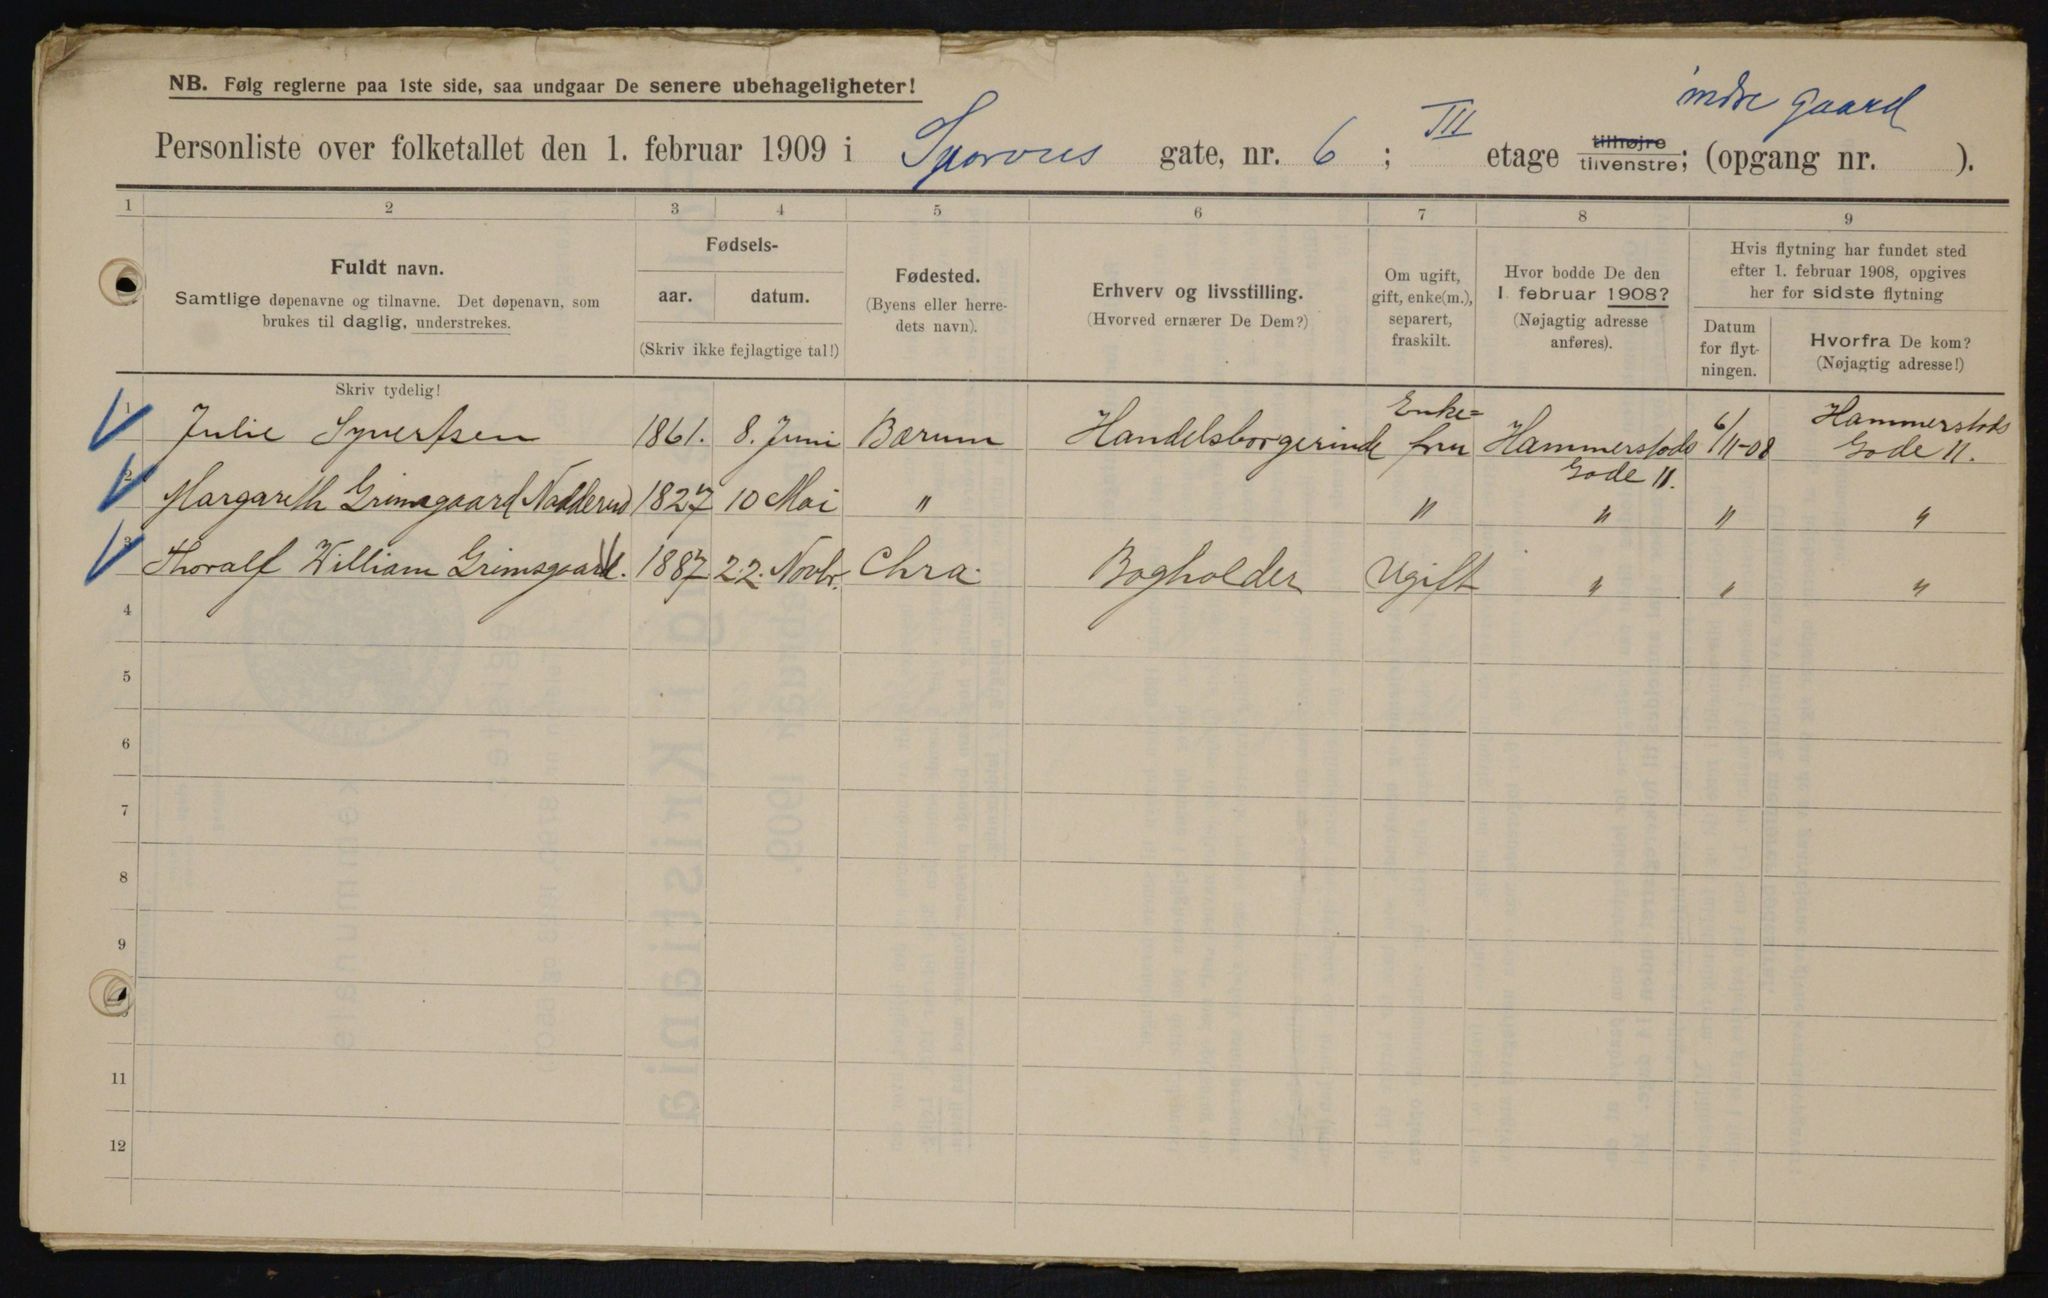 NB. Følg reglerne paa 1ste side, saa undgaar De senere ubehageligheter!
indre gaard
Personliste over folketallet den 1. februar 1909 i Sporveis gate, nr. 6 ; III etage tilhøjre tilvenstre; (opgang nr. ).
1 2 3 4 5 6 7 8 9
Fuldt navn.
Samtlige døpenavne og tilnavne. Det døpenavn, som
brukes til daglig, understrekes.
Fødsels-
aar. datum.
(Skriv ikke fejlagtige tal!)
Fødested.
(Byens eller herre-
dets navn).
Erhverv og livsstilling.
(Hvorved ernærer De Dem?)
Om ugift,
gift, enke(m.),
separert,
fraskilt.
Hvor bodde De den
1. februar 1908?
(Nøjagtig adresse
anføres).
Hvis flytning har fundet sted
efter 1. februar 1908, opgives
her for sidste flytning
Datum
for flyt-
ningen.
Hvorfra De kom?
(Nøjagtig adresse!)
Skriv tydelig!
1 Julie Syvertsen 1861. 8. Juni Bærum Handelsborgerinde Enke= fru Hammerstads Gade 11. 6/11-08 Hammerstads Gade 11.
2 Margareth Grimsgaard Nadderud 1827 10 Mai " " " " "
3 Thoralf William Grimsgaard. 1887 22. Novbr. Chra. Bogholder Ugift " " "
4
5
6
7
8
9
11
12